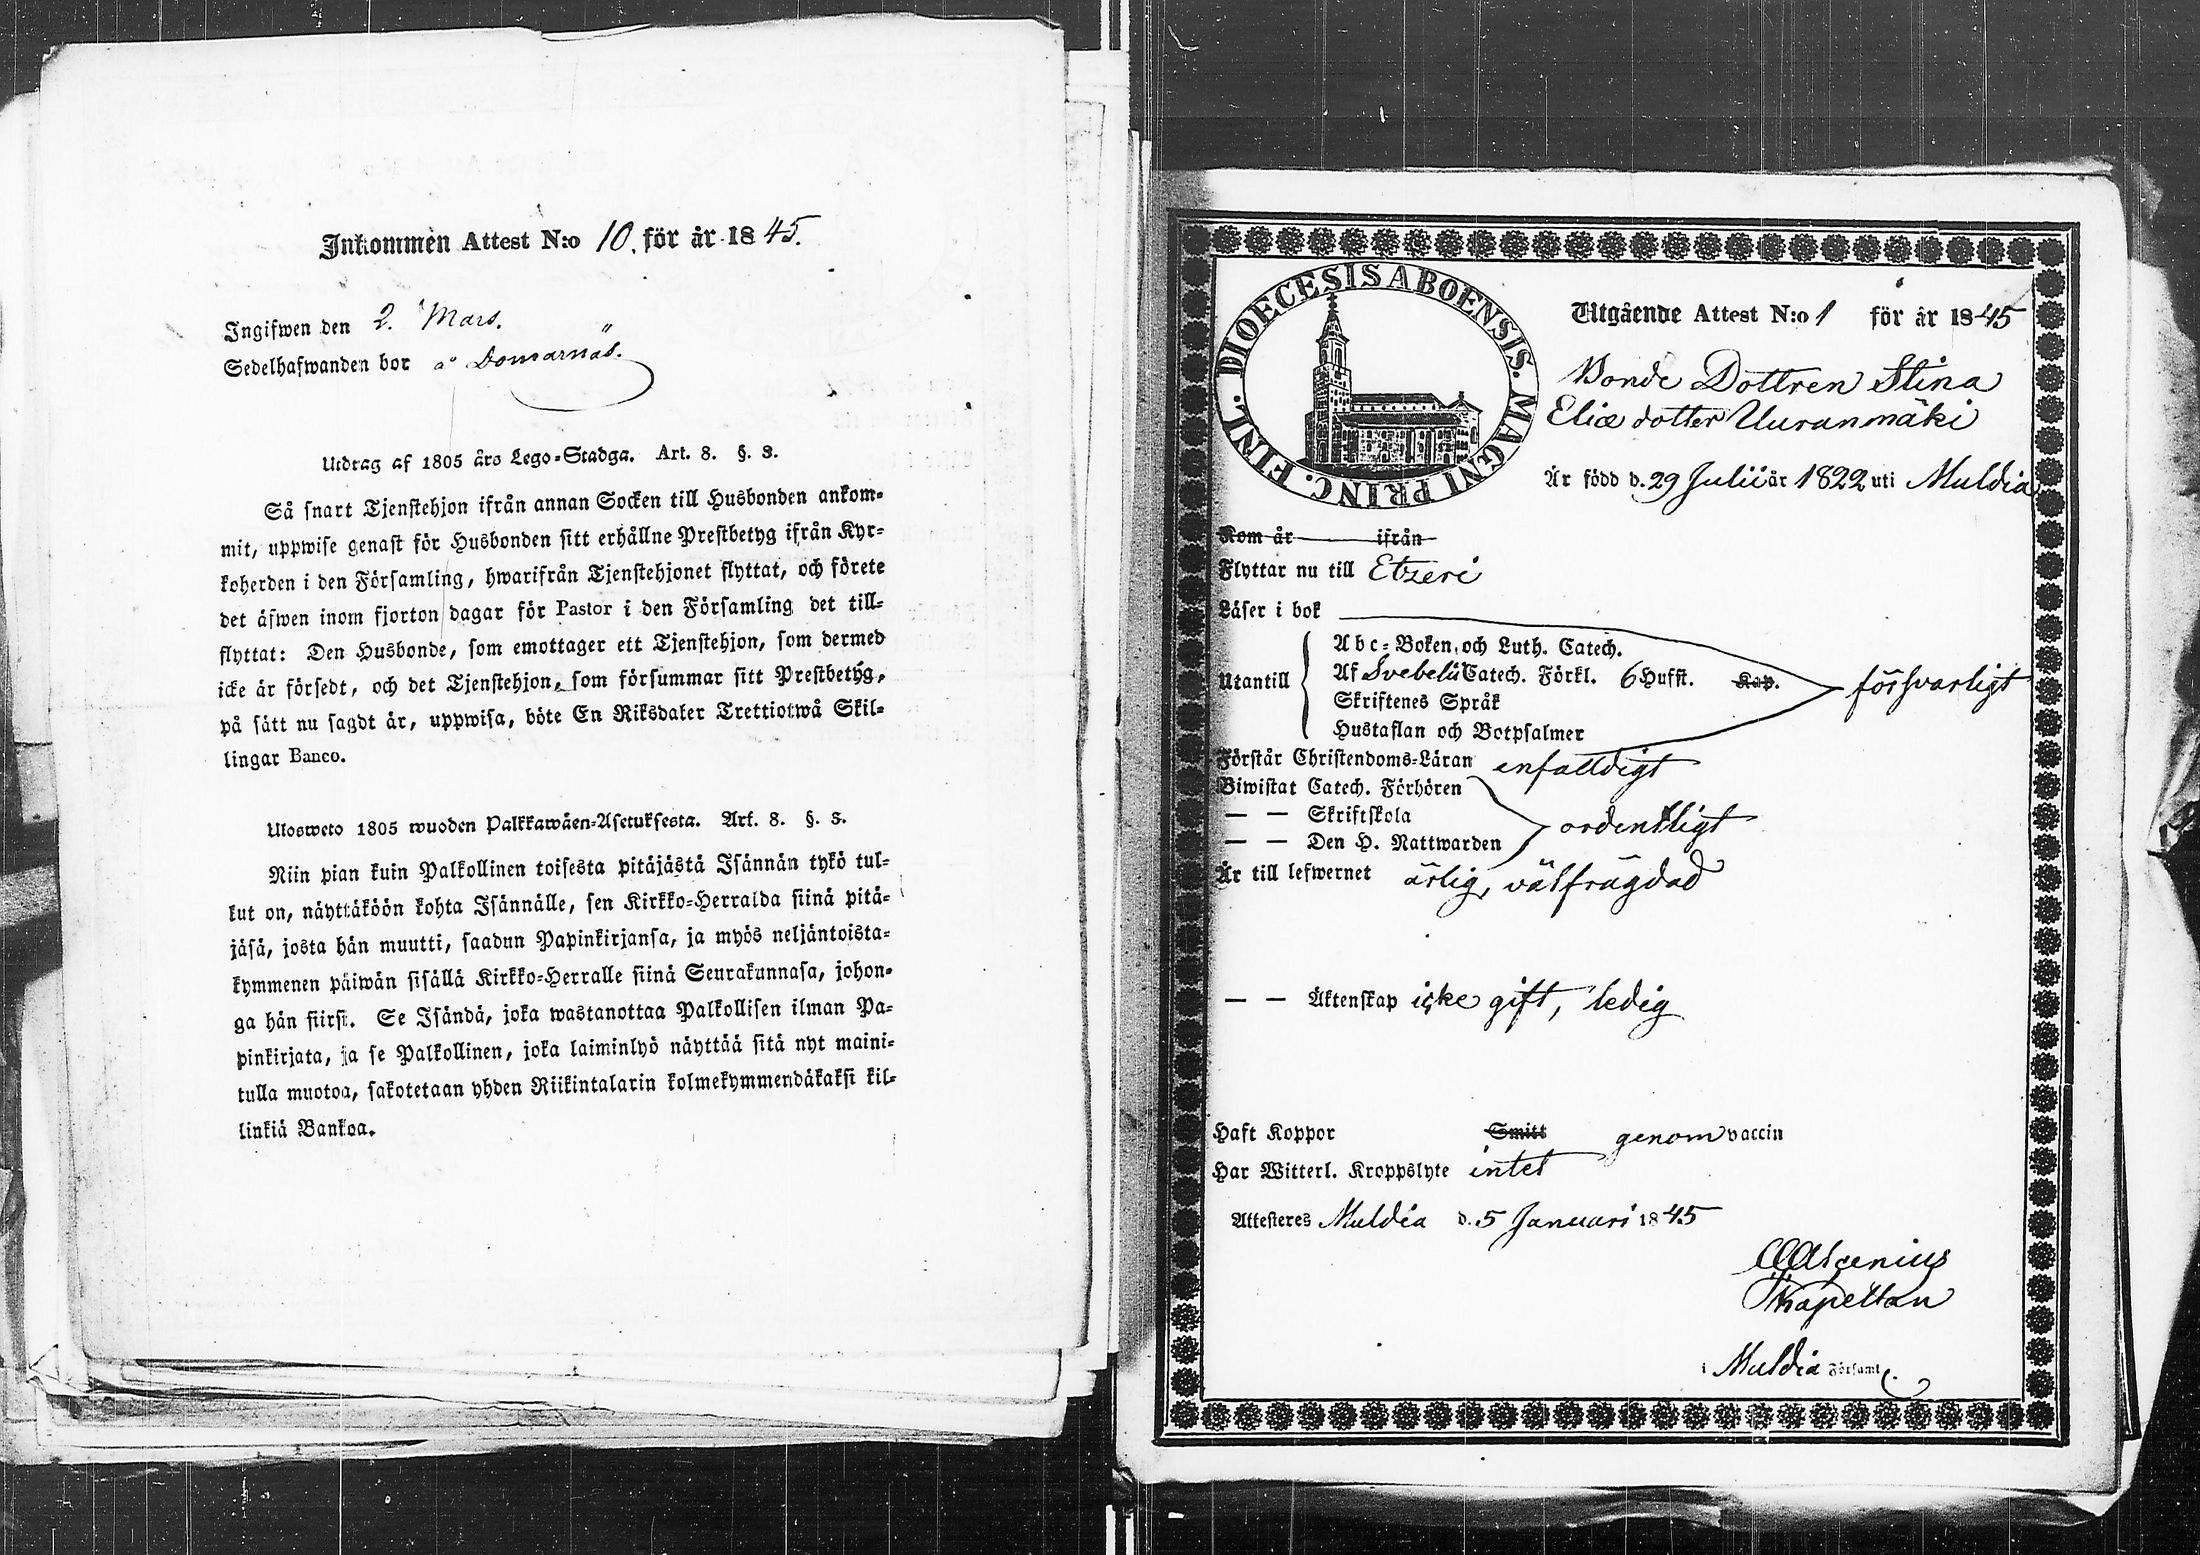 Inkommen Attest N:o 10. för år 1845.
Ingifwen den 2. Mars.
Sedelhafwanden bor å Domarnäs.
Utdrag af 1805 års Lego-Stadga. Art. 8. §. 3.
Så snart Tjenstehjon ifrån annan Socken till Husbonden ankom-
mit, uppwise genast för Husbonden sitt erhållne Prestbetyg ifrån Kyr-
koherden i den Församling, hwarifrån Tjenstehjonet flyttat, och förete
det äfwen inom fjorton dagar för Pastor i den Församling det till-
flyttat: Den Husbonde, som emottager ett Tjenstehjon, som dermed
icke är försedt, och det Tjenstehjon, som försummar sitt Prestbetyg,
på sätt nu sagdt är, uppwisa, böte En Riksdaler Trettiotwå Skil-
lingar Banco.
Ulosweto 1805 wuoden Palkkawäen-Asetuksesta. Art. 8. §. 3.
Niin pian kuin Palkollinen toisesta pitäjästä Isännän tykö tul-
lut on, näyttäköön kohta Isännälle, sen Kirkko-Herralda siinä pitä-
jäsä, josta hän muutti, saadun Papinkirjansa, ja myös neljäntoista-
kymmenen päiwän sisällä Kirkko-Herralle siinä Seurakunnasa, johon-
ga hän siirsi. Se Isändä, joka wastanottaa Palkollisen ilman Pa-
pinkirjata, ja se Palkollinen, joka laiminlyö näyttää sitä nyt maini-
tulla muotoa, sakotetaan yhden Riikintalarin kolmekymmendäkaksi kil-
linkiä Bankoa.
DIOECESIS ABOENSIS. MAGNI PRINC. FINL.
Utgående Attest N:o 1 för år 1845
Bonde Dottren Stina
Eliæ dotter Uuranmäki
Är född d. 29 Julii år 1822 uti Muldia
Kom år ifrån
Flyttar nu till Etzeri
Läser i bok
Utantill
Abc-Boken, och Luth. Catech.
Af Svebelii Catech. Förkl. 6 Hufst. Kap. försvarligt
Skriftenes Språk
Hustaflan och Botpsalmer
Förstår Christendoms-Läran enfaldigt
Biwistat Catech. Förhören
— — Skriftskola ordentligt
— — Den H. Nattwarden
Är till lefwernet ärlig, välfrägdad
— — Äktenskap icke gift, ledig
Haft Koppor Smitt genom vaccin
Har Witterl. Kroppslyte intet
Attesteres Muldia d. 5 Januari 1845
Kapellan
i Muldia Församl.